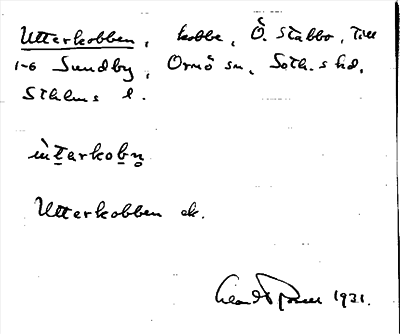 Utterkobben, kobbe, Ö. Stabbo, till
1-6 Sundby, Ornö sn, Soth.s hd,
Sthlms l.
ùtarkobn̥
Utterkobben ek.
1931.